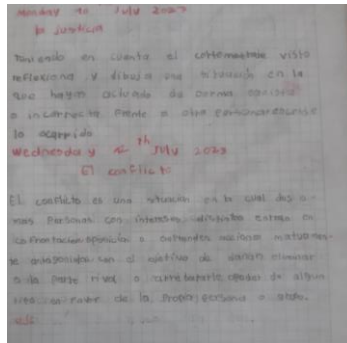 Monday 10 July 2023
la justicia
Teniendo en cuenta el cortometraje visto
reflexiona y dibuja una situación en la
que hayas actuado de forma
o incorrecta frente a otra persona
lo ocurrido
Wednesday th July 2023
El conflicto
El conflicto es una situación en la cual dos o
mas personas con intereses distintos entran en
confrontación oposición o emprenden acciones mutuamen-
te antagonistas con el objetivo de dañar eliminar
a la parte rival o
de la propia persona o